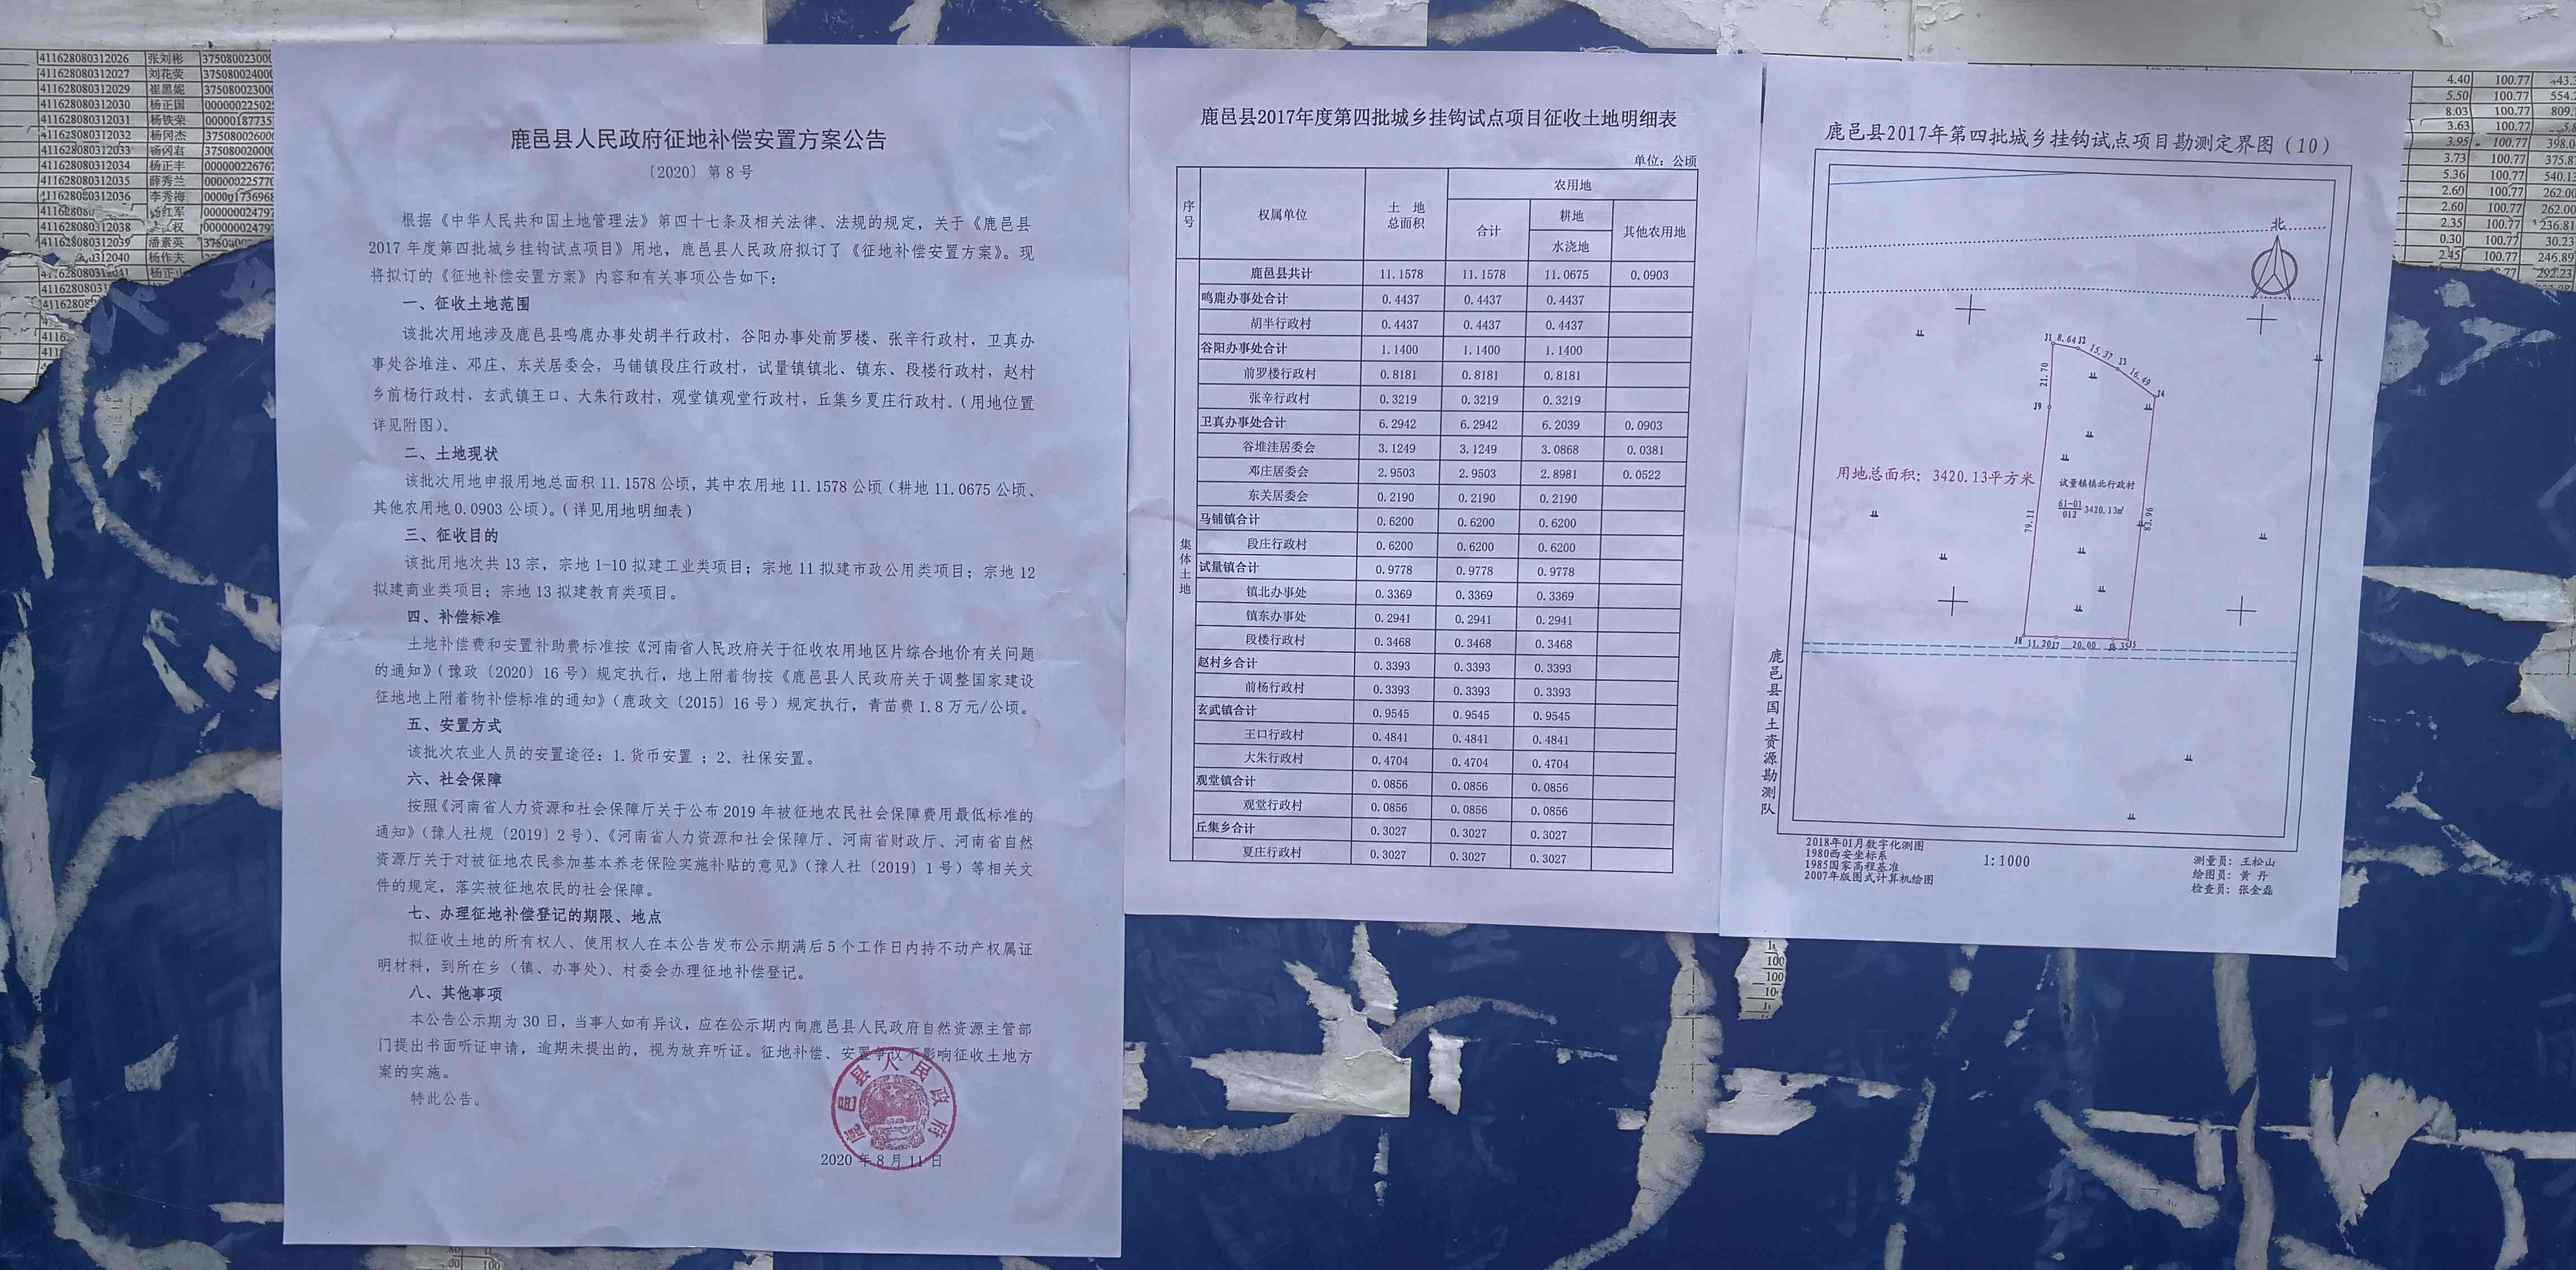 411628080312026 张刘彬 37508002300
411628080312027 刘花荧 37508002400
411628080312029 崔黑妮 37508002300
411628080312030 杨正国 00000022502
411628080312031 杨铁荣 00000187735
411628080312032 杨冈杰 37508002600
411628080312034 杨正丰 00000022676
411628080312035 薛秀兰 00000022577
411628080312036 李秀梅
杨红军 00000002479
411628080312038
411628080312039 潘素英
杨作夫
鹿邑县人民政府征地补偿安置方案公告
〔2020〕第 8 号
根据《中华人民共和国土地管理法》第四十七条及相关法律、法规的规定，关于《鹿邑县
2017 年度第四批城乡挂钩试点项目》用地，鹿邑县人民政府拟订了《征地补偿安置方案》。现
将拟订的《征地补偿安置方案》内容和有关事项公告如下：
一、征收土地范围
该批次用地涉及鹿邑县鸣鹿办事处胡半行政村，谷阳办事处前罗楼、张辛行政村，卫真办
事处谷堆洼、邓庄、东关居委会，马铺镇段庄行政村，试量镇镇北、镇东、段楼行政村，赵村
乡前杨行政村，玄武镇王口、大朱行政村，观堂镇观堂行政村，丘集乡夏庄行政村。（用地位置
详见附图）。
二、土地现状
该批次用地申报用地总面积 11.1578 公顷，其中农用地 11.1578 公顷（耕地 11.0675 公顷、
其他农用地 0.0903 公顷）。（详见用地明细表）
三、征收目的
该批用地次共 13 宗，宗地 1-10 拟建工业类项目；宗地 11 拟建市政公用类项目；宗地 12
拟建商业类项目；宗地 13 拟建教育类项目。
四、补偿标准
土地补偿费和安置补助费标准按《河南省人民政府关于征收农用地区片综合地价有关问题
的通知》（豫政〔2020〕16 号）规定执行，地上附着物按《鹿邑县人民政府关于调整国家建设
征地地上附着物补偿标准的通知》（鹿政文〔2015〕16 号）规定执行，青苗费 1.8 万元/公顷。
五、安置方式
该批次农业人员的安置途径：1.货币安置 ；2、社保安置。
六、社会保障
按照《河南省人力资源和社会保障厅关于公布 2019 年被征地农民社会保障费用最低标准的
通知》（豫人社规〔2019〕2 号）、《河南省人力资源和社会保障厅、河南省财政厅、河南省自然
资源厅关于对被征地农民参加基本养老保险实施补贴的意见》（豫人社〔2019〕1 号）等相关文
件的规定，落实被征地农民的社会保障。
七、办理征地补偿登记的期限、地点
拟征收土地的所有权人、使用权人在本公告发布公示期满后 5 个工作日内持不动产权属证
明材料，到所在乡（镇、办事处）、村委会办理征地补偿登记。
八、其他事项
本公告公示期为 30 日，当事人如有异议，应在公示期内向鹿邑县人民政府自然资源主管部
门提出书面听证申请，逾期未提出的，视为放弃听证。征地补偿、安置争议不影响征收土地方
案的实施。
特此公告。
鹿邑县人民政府
2020 年 8 月 11 日
鹿邑县2017年度第四批城乡挂钩试点项目征收土地明细表
单位：公顷
序号 权属单位 土 地 总面积 农用地
合计 耕地 其他农用地
水浇地
集体土地
鹿邑县共计 11.1578 11.1578 11.0675 0.0903
鸣鹿办事处合计 0.4437 0.4437 0.4437
胡半行政村 0.4437 0.4437 0.4437
谷阳办事处合计 1.1400 1.1400 1.1400
前罗楼行政村 0.8181 0.8181 0.8181
张辛行政村 0.3219 0.3219 0.3219
卫真办事处合计 6.2942 6.2942 6.2039 0.0903
谷堆洼居委会 3.1249 3.1249 3.0868 0.0381
邓庄居委会 2.9503 2.9503 2.8981 0.0522
东关居委会 0.2190 0.2190 0.2190
马铺镇合计 0.6200 0.6200 0.6200
段庄行政村 0.6200 0.6200 0.6200
试量镇合计 0.9778 0.9778 0.9778
镇北办事处 0.3369 0.3369 0.3369
镇东办事处 0.2941 0.2941 0.2941
段楼行政村 0.3468 0.3468 0.3468
赵村乡合计 0.3393 0.3393 0.3393
前杨行政村 0.3393 0.3393 0.3393
玄武镇合计 0.9545 0.9545 0.9545
王口行政村 0.4841 0.4841 0.4841
大朱行政村 0.4704 0.4704 0.4704
观堂镇合计 0.0856 0.0856 0.0856
观堂行政村 0.0856 0.0856 0.0856
丘集乡合计 0.3027 0.3027 0.3027
夏庄行政村 0.3027 0.3027 0.3027
鹿邑县2017年第四批城乡挂钩试点项目勘测定界图（10）
北
J1 8.64 J2
15.37 J3
16.49
J4
21.70
J9
用地总面积：3420.13平方米
试量镇镇北行政村
61-01
012 3420.13㎡
79.11
83.96
J8 11.20 J7 20.00 J6 J5
鹿邑县国土资源勘测队
2018年01月数字化测图
1980西安坐标系
1985国家高程基准
2007年版图式计算机绘图
1:1000
测量员：王松山
绘图员：黄 丹
检查员：张金磊
4.40 100.77 443.
5.50 100.77 554.
8.03 100.77 809.
3.63 100.77
3.95 100.77 398.0
3.73 100.77 375.8
5.36 100.77 540.1
2.60 100.77 262.00
2.60 100.77 262.00
2.35 100.77 236.81
0.30 100.77 30.23
2.45 100.77 246.89
292.23